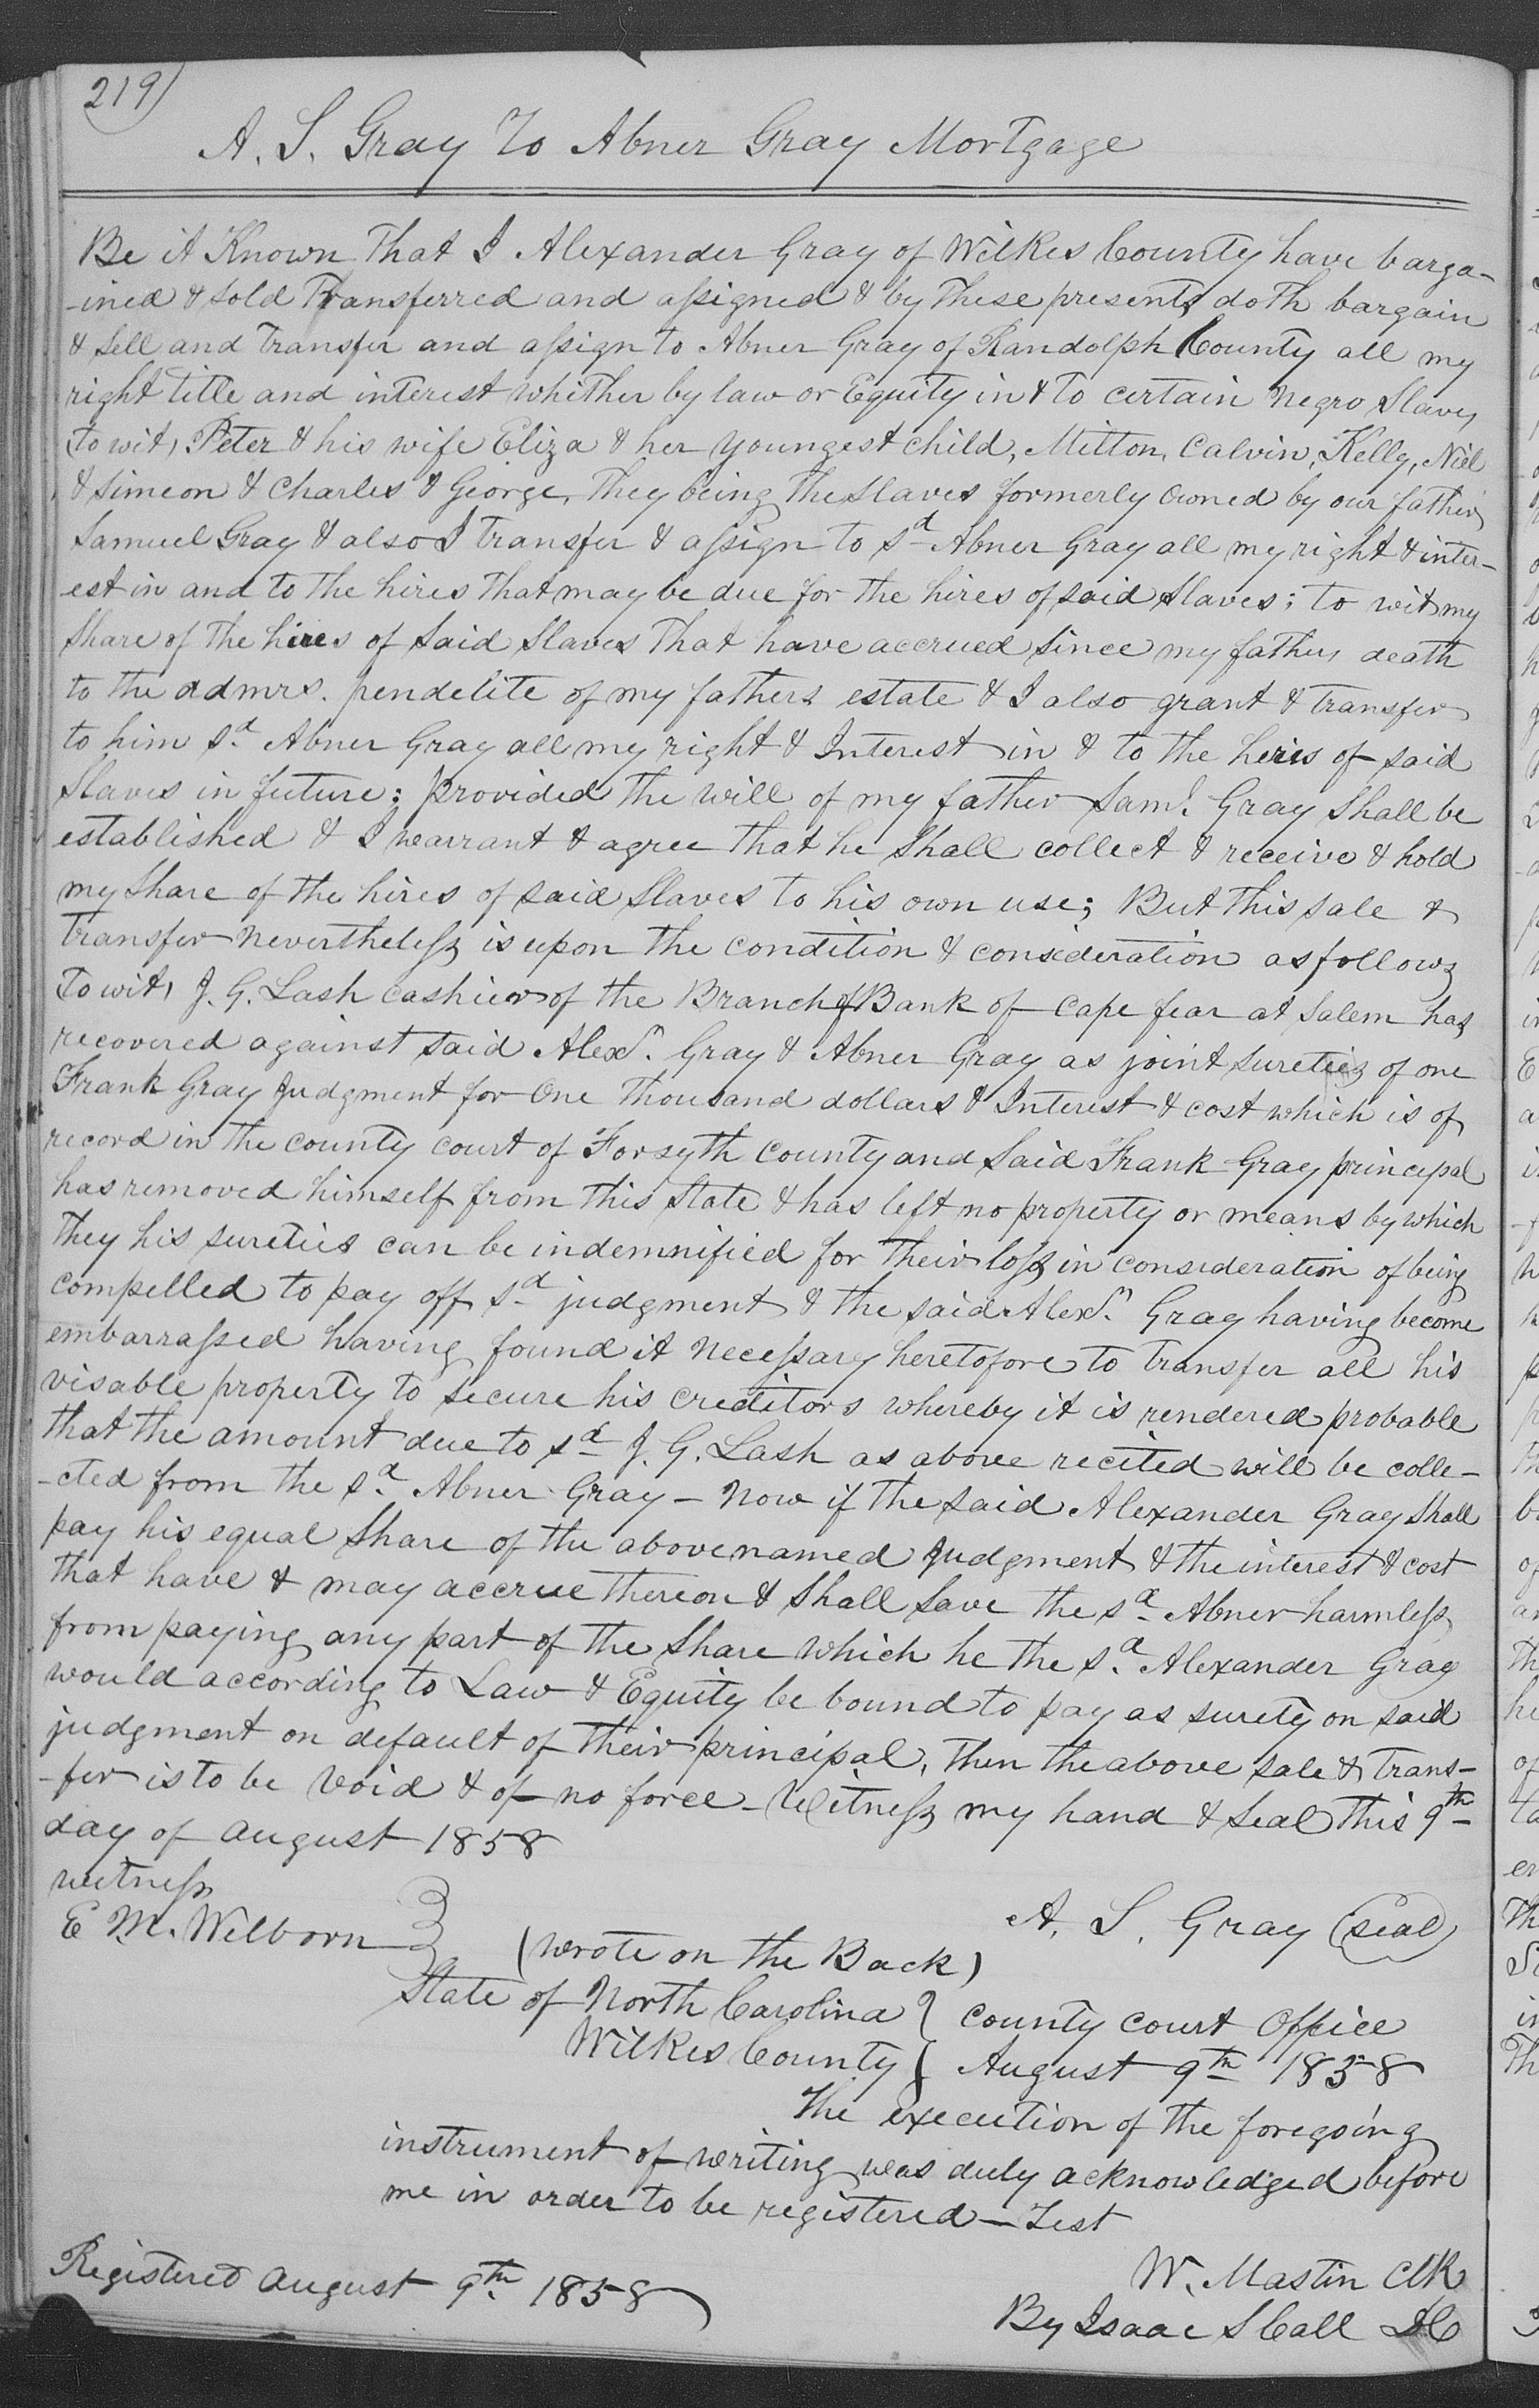 219)
A. S. Gray To Abner Gray Mortgage
Be it Known That I Alexander Gray of Wilkes County have barga-
-ined & sold Transferred and assigned & by These presents doth bargain
& sell and Transfer and assign to Abner Gray of Randolph County all my
right title and interest whither by law or Equity in & To certain Negro Slaves
to wit, Peter & his wife Eliza & her youngest child, Milton, Calvin, Kelly, Niel
& Simeon & Charles & George, They being The Slaves formerly owned by our father
Samuel Gray & also I transfer & assign to sd Abner Gray all my right & inter-
-est in and to the hires that may be due for the hires of said slaves; to wit my
Share of the hires of said Slaves That have accrued since my fathers death
to the admrs. pendelite of my fathers estate & I also grant & transfer
to him sd. Abner Gray all my right & Interest in & to the heires of said
Slaves in future; provided the will of my father Saml. Gray shall be
established & I warrant & agree that he shall collect & receive & hold
my share of the hires of said slaves to his own use; But this sale &
transfer nevertheless is upon the condition & consideration as follows
To wit, J. G. Lash cashier of the Branch of Bank of Cape fear at Salem has
recovered against said Alexr. Gray & Abner Gray as joint sureties of one
Frank Gray Judgment for One Thousand dollars & Interest & cost which is of
record in the county court of Forsyth county and said Frank Gray principal
has removed himself from this state & has left no property or means by which
They his sureties can be indemnified for their loss in consideration of being
compelled to pay off sd judgment & the said Alexr. Gray having become
embarrassed having found it necessary heretofore to transfer all his
visable property to secure his creditors whereby it is rendered probable
that the amount due to sd J. G. Lash as above recited will be colle-
-cted from the sd. Abner Gray - Now if the said Alexander Gray Shall
pay his equal share of the above named Judgment & the interest & cost
that have & may accrue thereon & shall save the sd. Abner harmless
from paying any part of the share which he the sd. Alexander Gray
would according to Law & Equity be bound to pay as surety on said
judgment on default of their principal, then the above sale & trans-
-fer is to be void & of no force - Witness my hand & seal this 9th
day of August 1858
witness
E M. Welborn
A. S. Gray (seal)
(wrote on the Back)
State of North Carolina } County Court Office
Wilkes County } August 9th 1858
The execution of the foregoing
instrument of writing was duly acknowledged before
me in order to be registered - Test
W. Mastin Clk
By Isaac S Call DC
Registered August 9th. 1858